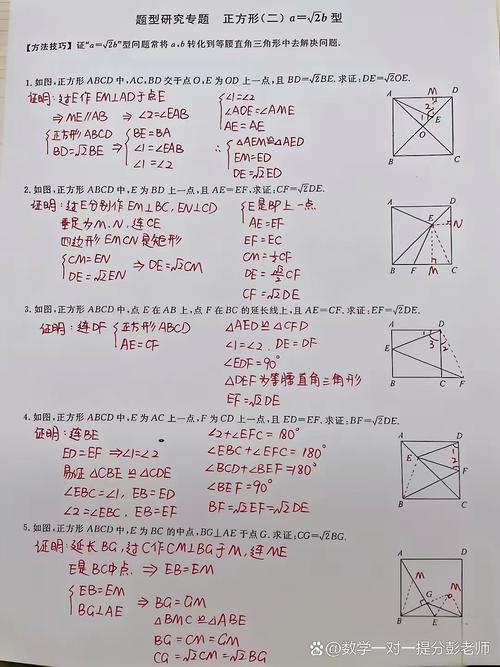 题型研究专题 正方形(二) a=√2b 型
【方法技巧】证“a=√2b”型问题常将 a,b 转化到等腰直角三角形中去解决问题.
1. 如图,正方形 ABCD 中,AC,BD 交于点 O,E 为 OD 上一点,且 BD=√2BE. 求证:DE=√2OE.
证明:过E作 EM⊥AD于点E
⇒ ME∥AB ⇒ ∠2=∠EAB
{正方形ABCD
BD=√2BE ⇒ {BE=BA
∠1=∠EAB
∠1=∠2
{∠1=∠2
∠AOE=∠AME
AE=AE
∴ {△AEM≌△AED
EM=ED
DE=√2ED
A M D
2
1 E
O
B C
2. 如图,正方形 ABCD 中,E 为 BD 上一点,且 AE=EF. 求证:CF=√2DE.
证明:过E分别作EM⊥BC,EN⊥CD
垂足为M、N,连CE
四边形EMCN是矩形
{CM=EN
DE=√2EN ⇒ DE=√2CM
{E是BD上一点
AE=EF
EF=EC
CM=½CF
DE=√2/2 CF
CF=√2DE
A D
E N
B F M C
3. 如图,正方形 ABCD 中,点 E 在 AB 上,点 F 在 BC 的延长线上,且 AE=CF. 求证:EF=√2DE.
证明:连DF {正方形ABCD
AE=CF
△AED≌△CFD
∠1=∠2. DE=DF
∠EDF=90°
△DEF为等腰直角三角形
EF=√2DE
A D
1
3 2
E
B C F
4. 如图,正方形 ABCD 中,E 为 AC 上一点,F 为 CD 上一点,且 ED=EF. 求证:BF=√2DE.
证明:连BE
ED=EF ⇒∠1=∠2
易证△CBE≌△CDE
∠EBC=∠1, EB=ED
∠2=∠EBC, EB=EF
∠2+∠EFC=180°
∠EBC+∠EFC=180°
∠BCD+∠BEF=180°
∠BEF=90°
BF=√2EF=√2DE
A D
1
E 2
F
B C
5. 如图,正方形 ABCD 中,E 为 BC 的中点,BG⊥AE 于点 G. 求证:CG=√2BG.
证明:延长BG,过C作CM⊥BG于M,连ME
E是BC中点 ⇒ EB=EM
{EB=EM
BG⊥AE ⇒ BG=GM
△BMC≌△ABE
BG=CM=GM
CG=√2CM=√2BG
A D
M
G M
B E C
@数学一对一提分彭老师